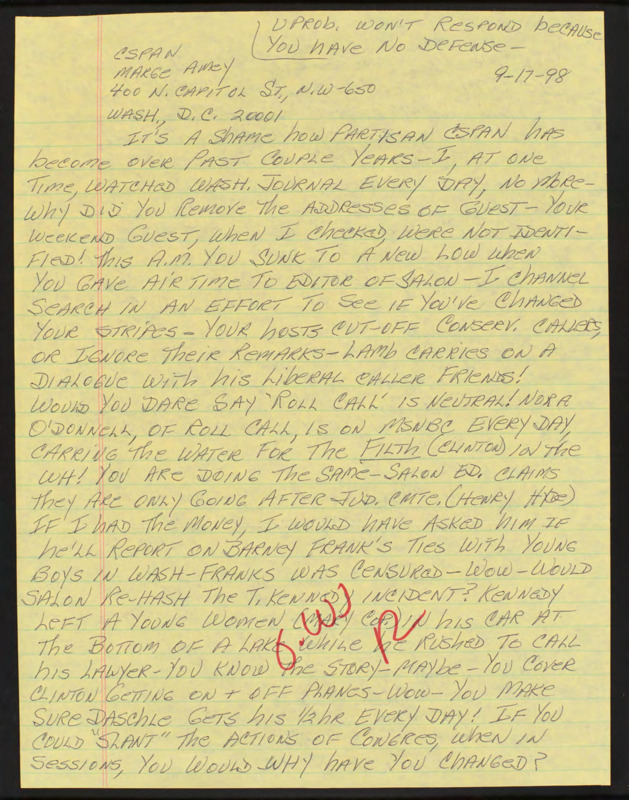 U PROB. WON'T RESPOND because
YOU HAVE NO DEFENSE—
CSPAN
MARGE AMEY
9-17-98
400 N. CAPITOL ST, N.W-650
WASH., D.C. 20001
IT'S A SHAME HOW PARTISAN CSPAN HAS
become OVER PAST COUPLE YEARS—I, AT ONE
TIME, WATCHED WASH. JOURNAL EVERY DAY, NO MORE—
WHY DID YOU REMOVE THE ADDRESSES OF GUEST—YOUR
WEEKEND GUEST, WHEN I CHECKED, WERE NOT IDENTI-
FIED! THIS A.M. YOU SUNK TO A NEW LOW WHEN
YOU GAVE AIR TIME TO EDITOR OF SALON—I CHANNEL
SEARCH IN AN EFFORT TO SEE IF YOU'VE CHANGED
YOUR STRIPES—YOUR HOSTS CUT-OFF CONSERV. CALLERS,
OR IGNORE THEIR REMARKS—LAMB CARRIES ON A
DIALOGUE WITH HIS LIBERAL CALLER FRIENDS!
WOULD YOU DARE SAY 'ROLL CALL' IS NEUTRAL! NORA
O'DONNELL, OF ROLL CALL, IS ON MSNBC EVERY DAY,
CARRING THE WATER FOR THE FILTH (CLINTON) IN THE
WH! YOU ARE DOING THE SAME—SALON ED. CLAIMS
THEY ARE ONLY GOING AFTER JUD. CMTE. (HENRY HYDE)
IF I HAD THE MONEY, I WOULD HAVE ASKED HIM IF
HE'LL REPORT ON BARNEY FRANK'S TIES WITH YOUNG
BOYS IN WASH—FRANKS WAS CENSURED—WOW—WOULD
SALON RE-HASH THE T. KENNEDY INCIDENT? KENNEDY
LEFT A YOUNG WOMEN (MARY COP.) IN HIS CAR AT
THE BOTTOM OF A LAKE WHILE HE RUSHED TO CALL
HIS LAWYER—YOU KNOW THE STORY—MAYBE—YOU COVER
CLINTON GETTING ON + OFF PLANES—WOW—YOU MAKE
SURE DASCHLE GETS HIS 1/2 HR EVERY DAY! IF YOU
COULD "SLANT" THE ACTIONS OF CONGRES, WHEN IN
SESSIONS, YOU WOULD. WHY HAVE YOU CHANGED?